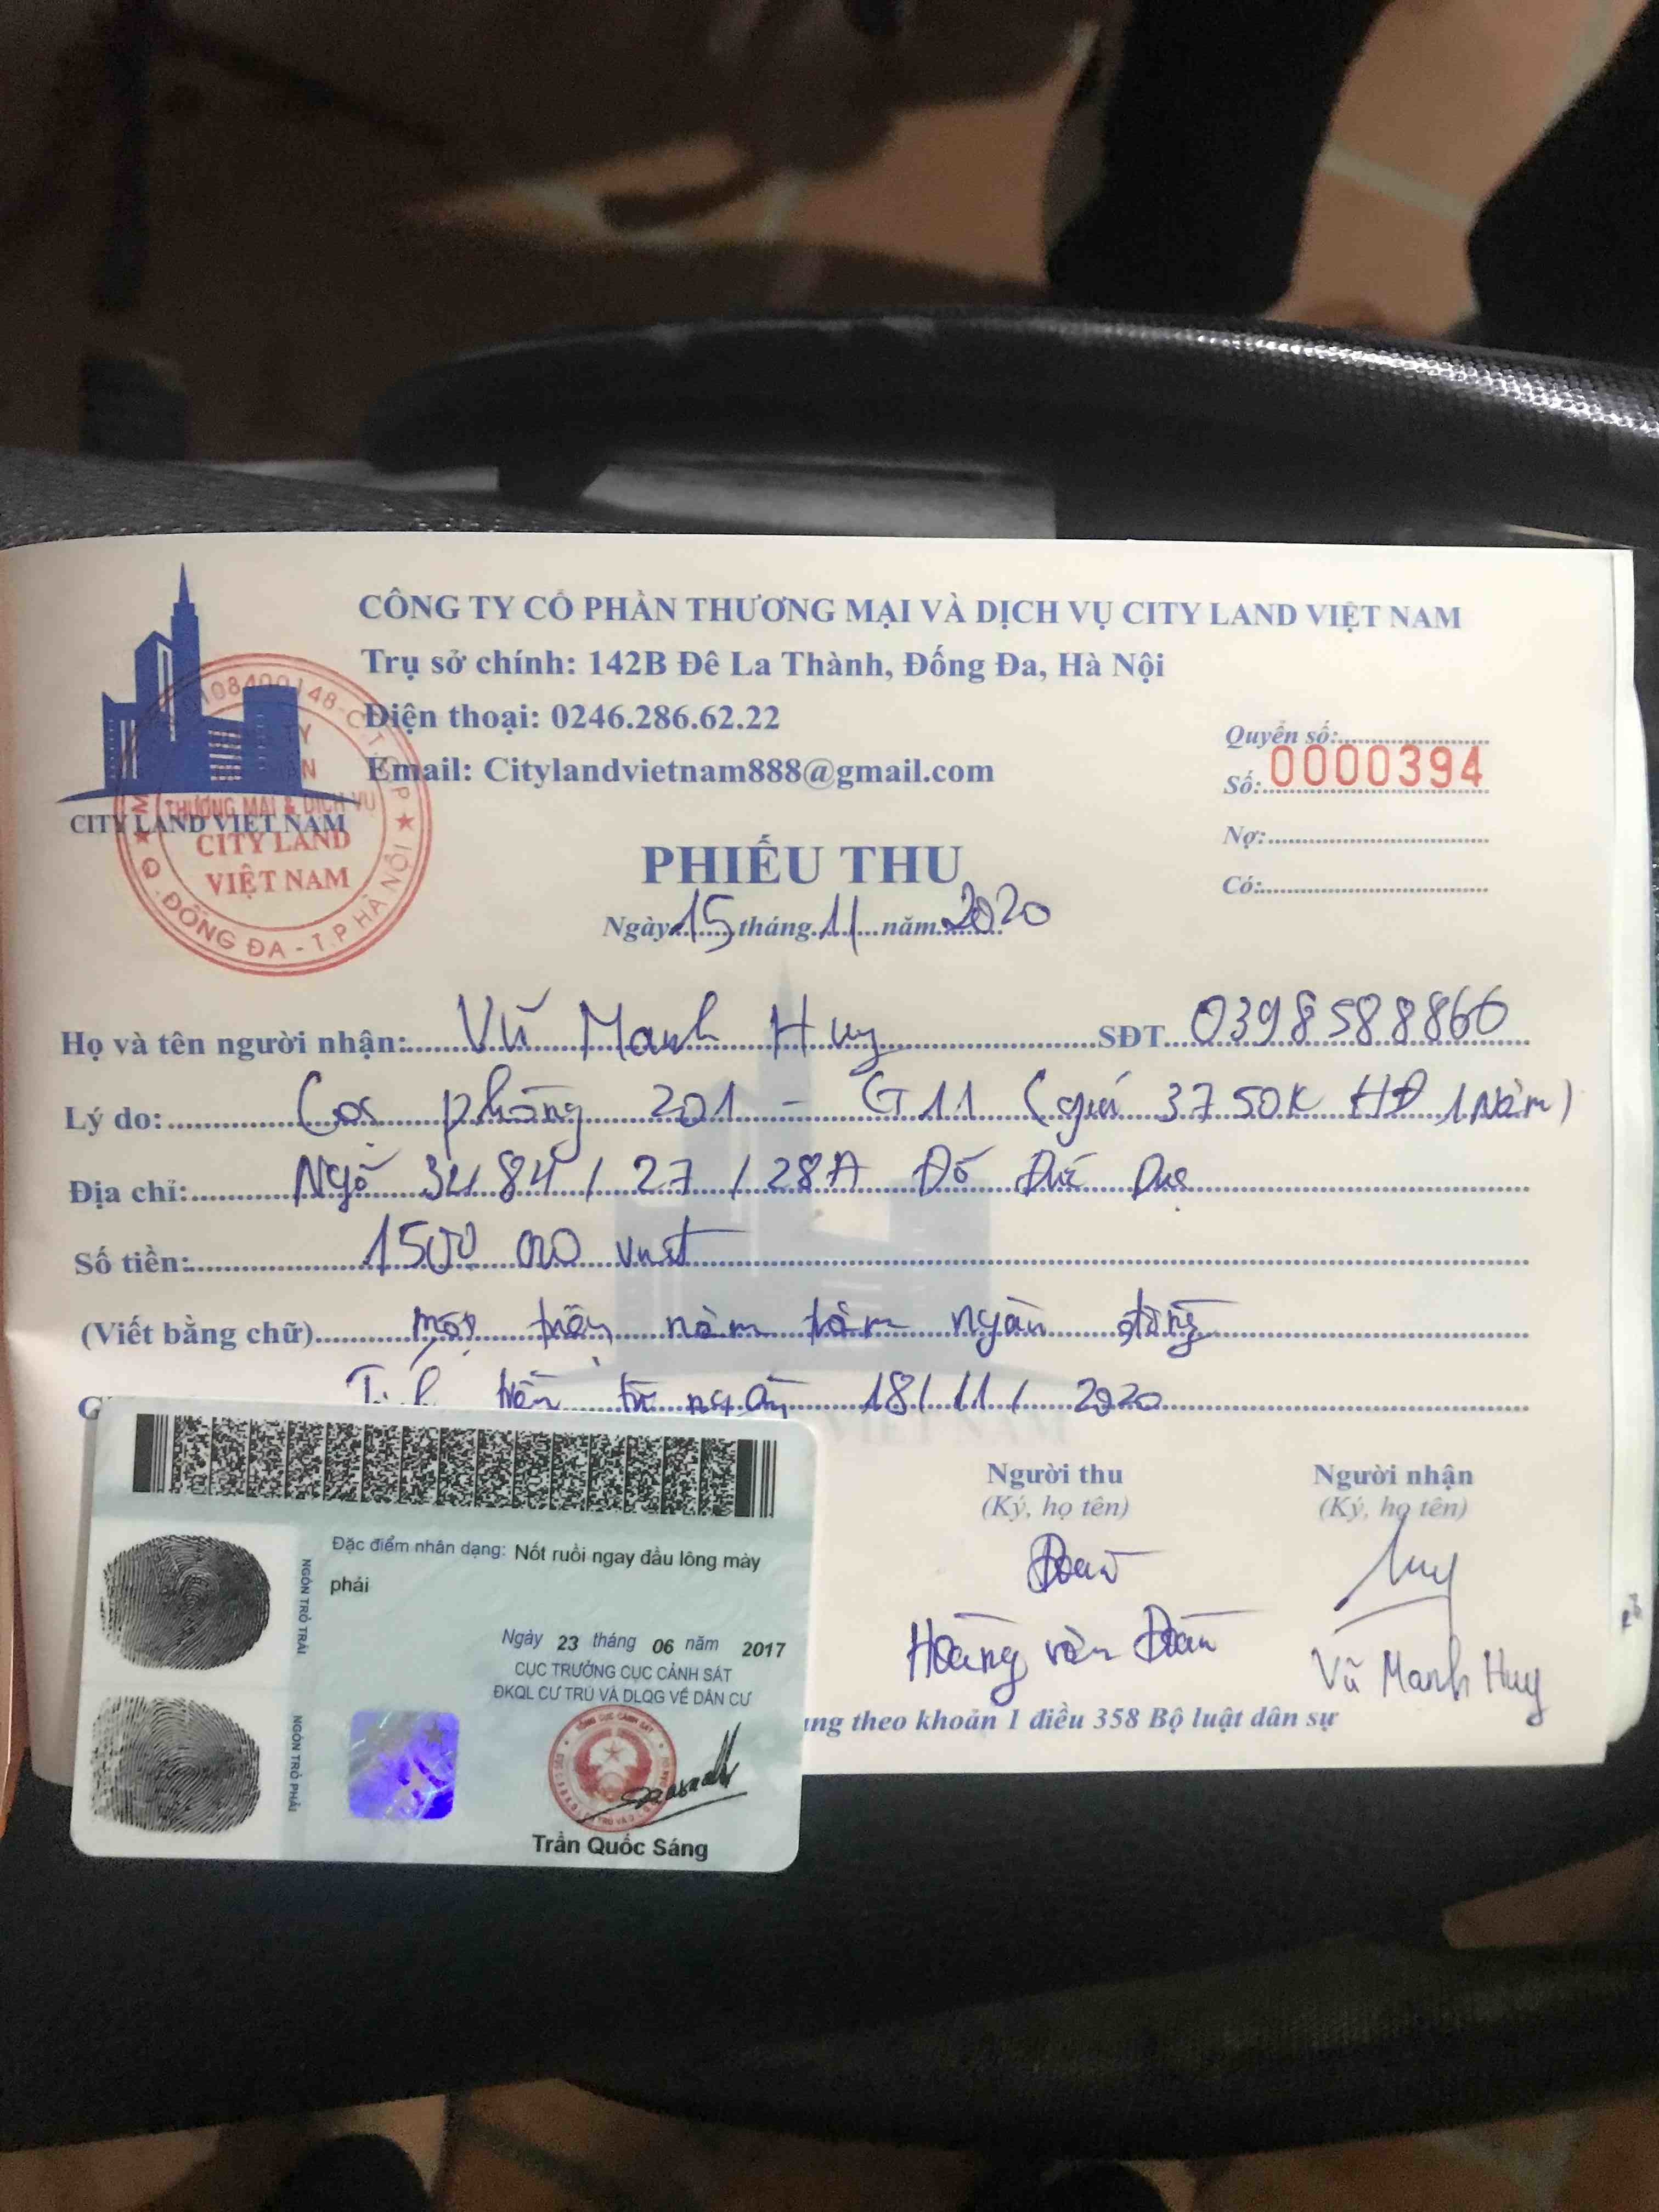 CÔNG TY CỔ PHẦN THƯƠNG MẠI VÀ DỊCH VỤ CITY LAND VIỆT NAM
Trụ sở chính: 142B Đê La Thành, Đống Đa, Hà Nội
Điện thoại: 0246.286.62.22
Email: Citylandvietnam888@gmail.com
CITY LAND VIỆT NAM
THƯƠNG MẠI & DỊCH VỤ
CITY LAND
VIỆT NAM
Q. ĐỐNG ĐA - T.P HÀ NỘI
Quyển số:
Số: 0000394
Nợ:
Có:
PHIẾU THU
Ngày 15 tháng 11 năm 2020
Họ và tên người nhận: Vũ Mạnh Huy SĐT 0398588866
Lý do: Cọc phòng 201 - G11 (giá 3750K HĐ 1 Năm)
Địa chỉ: Ngõ 34/84/27/28A Đỗ Đức Dục
Số tiền: 1500 000 vnđ
(Viết bằng chữ) một triệu năm trăm ngàn đồng
Tính tiền từ ngày 18/11/2020
VIỆT NAM
Người thu
(Ký, họ tên)
Hoàng văn Đoàn
Người nhận
(Ký, họ tên)
Huy
Vũ Mạnh Huy
ung theo khoản 1 điều 358 Bộ luật dân sự
Đặc điểm nhân dạng: Nốt ruồi ngay đầu lông mày
phải
NGÓN TRỎ TRÁI
NGÓN TRỎ PHẢI
Ngày 23 tháng 06 năm 2017
CỤC TRƯỞNG CỤC CẢNH SÁT
ĐKQL CƯ TRÚ VÀ DLQG VỀ DÂN CƯ
Trần Quốc Sáng